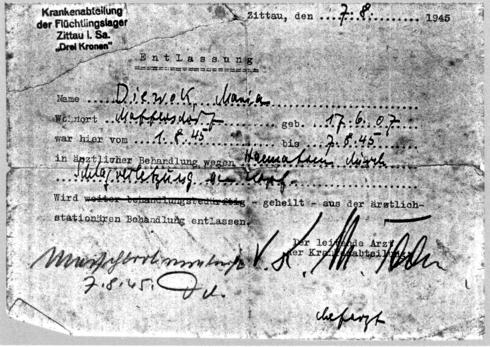 Krankenabteilung
der Flüchtlingslager
Zittau i. Sa.
„Drei Kronen“
Zittau, den 7.8. 1945
Entlassung
Name Diewok, Maria
Wohnort Maffersdorf geb. 17.6.07
war hier vom 1.8.45 bis 7.8.45
in ärztlicher Behandlung wegen Haematom durch
Schlagverletzung am Kopf.
Wird weiter behandlungsbedürftig - geheilt - aus der ärztlich-
stationären Behandlung entlassen.
Der leitende Arzt
der Krankenabteilung
7.8.45.
Chefarzt